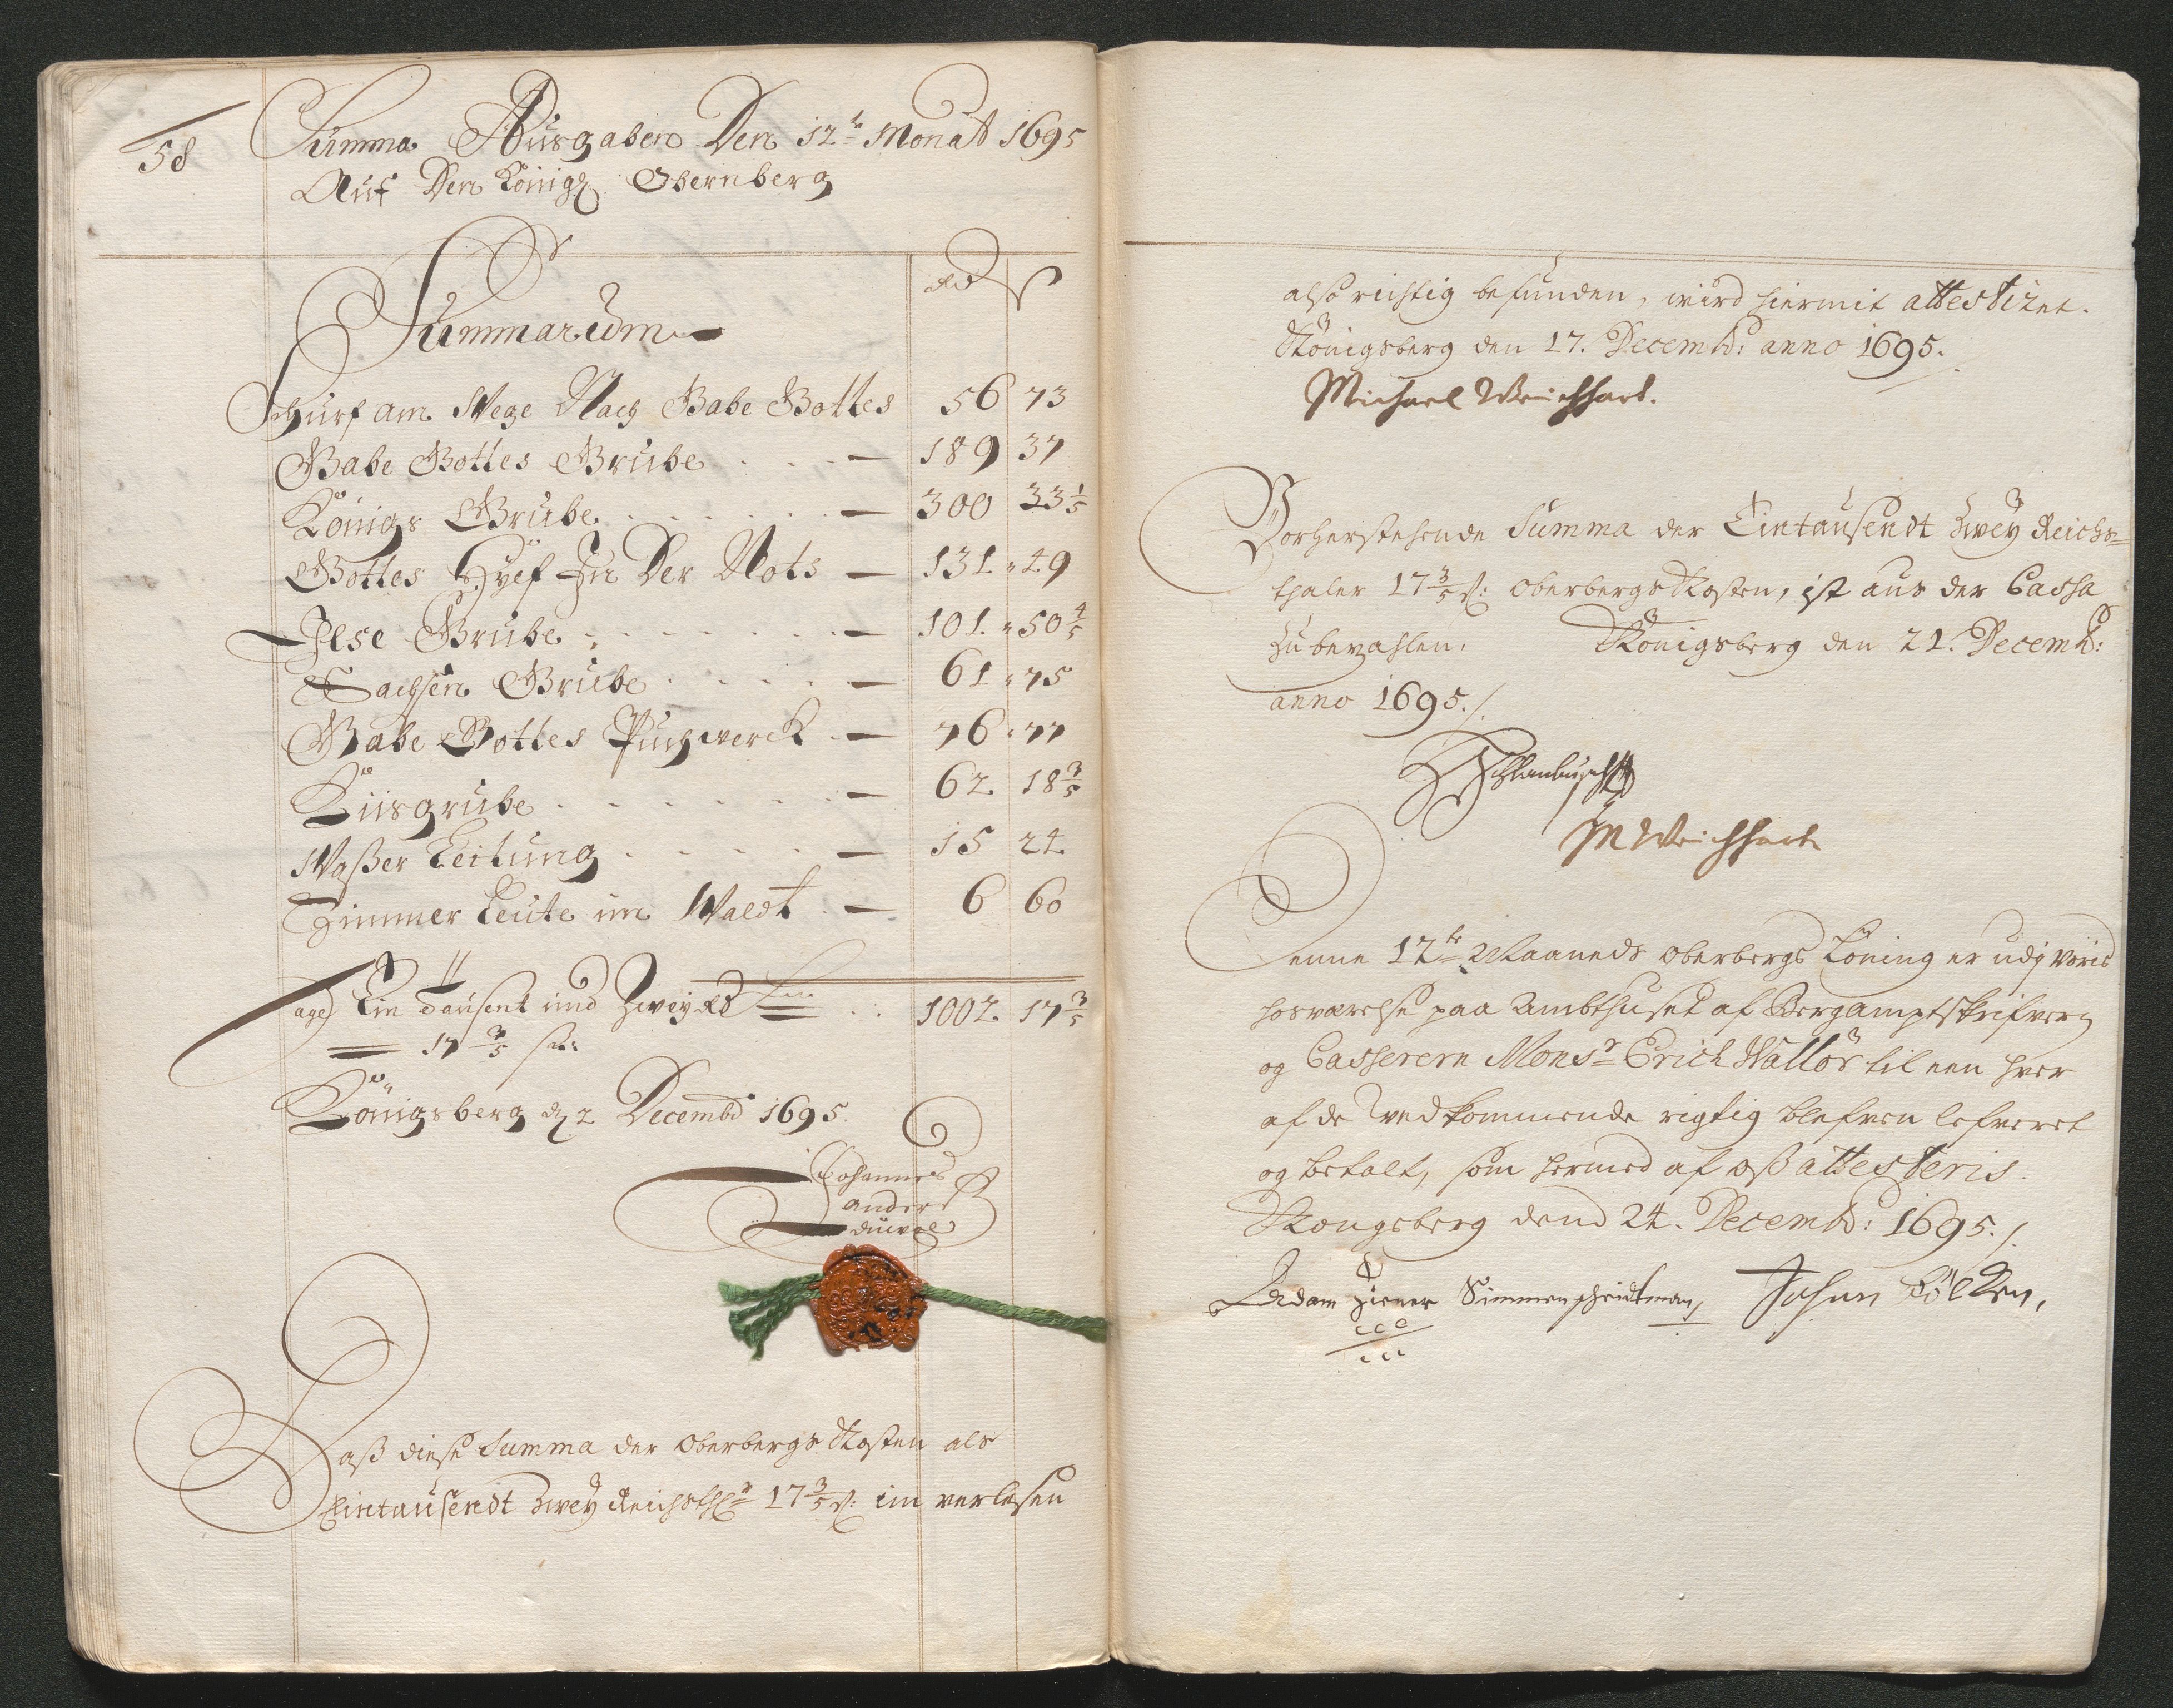 58
Summa Ausgaben Den 12te Monat 1695
Auf Den Königl Obernberg
Rd ß
Summarum
Schurf am Wege Nach Gabe Gottes 56 73
Gabe Gottes Grube 189 37
Königs Grube 300 33 1/5
Gottes Hÿlf In Der Noth 131 29
Ilse Grube 101 50 4/5
Sachsen Grube 61 75
Gabe Gottes Puchwerck 76 77
Kiisgrube 62 18 3/5
Waßer Leitung 15 24
Zimmer Leute im Waldt 6 60
age) Ein Tausent und Zwey Rd 1002 17 3/5
17 3/5 ß
Königsberg d 2 Decembr 1695
Johannes
ander
duwal
Daß diese Summa der Oberbergs Kosten als
Eintausendt zwey Reichsthlr 17 3/5 ß: im verlesen
also richtig befunden, wird hiermit attestiret.
Königsberg den 17. Decembr: anno 1695.
Michael Weichhart.
Vorherstehende Summa der Eintausendt zwey Reichs=
thaler 17 3/5 ß: Oberbergs Kosten, ist aus der Cassa
zu bezahlen. Königsberg den 21. Decembr:
anno 1695./.
HSchlanbusch
M Weichhart
Denne 12te Maaneds Oberbergs Löning er udj voris
hosværelse paa Ambthuset af Bergamptskrifveren
og Casserern Monsr Erich Wallør til een hver
af de vedkommende rigtig blefven lefveret
og betalt, som hermed af oß attesteris.
Kongsberg dend 24. Decembr: 1695./.
Adam Ziener Simmenscheidtman, Johan Cölken,